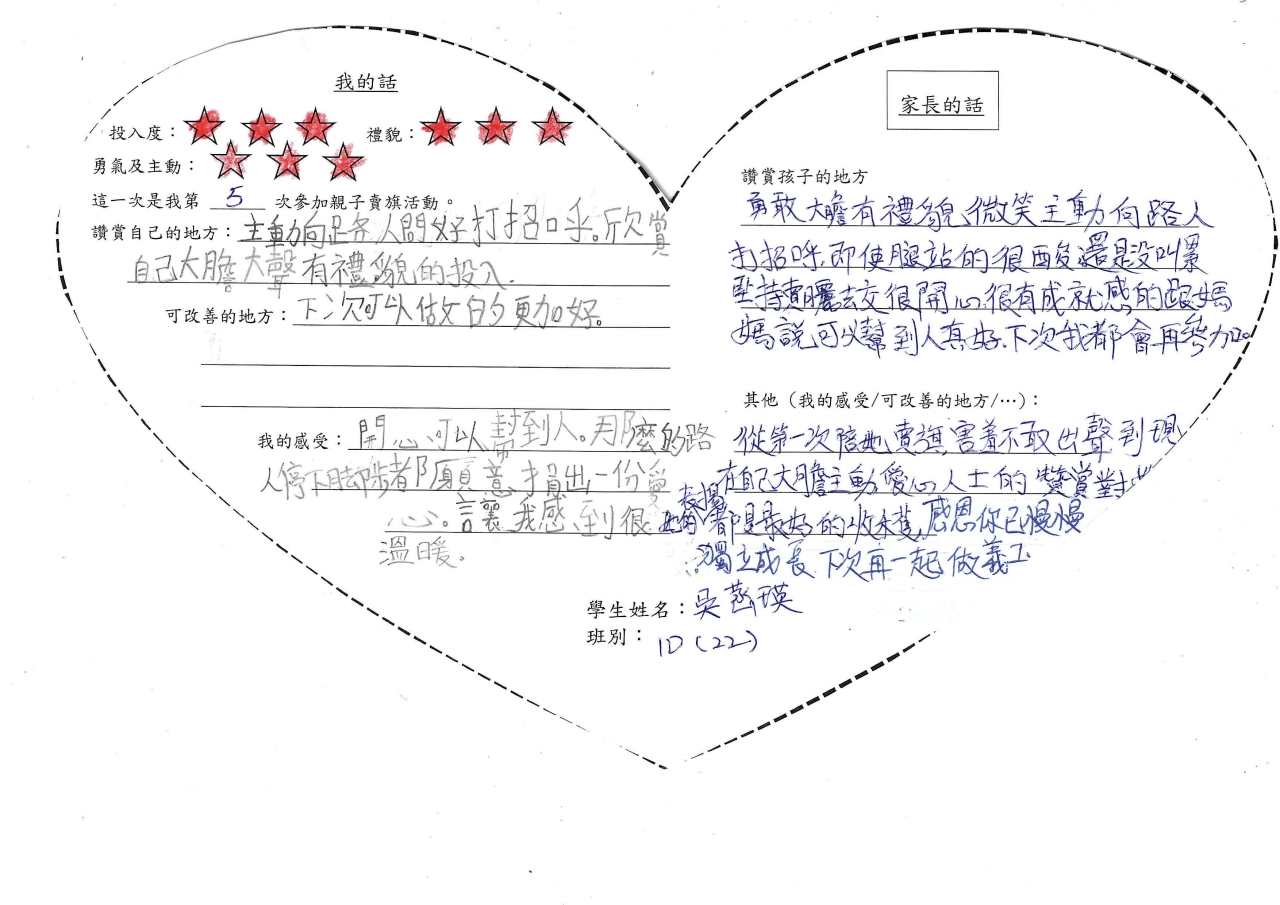 我的話
投入度： 禮貌：
勇氣及主動：
這一次是我第 5 次參加親子賣旗活動。
讚賞自己的地方：主動向足各人問好打招呼。欣賞
自己大膽大聲有禮貌的投入.
可改善的地方：下次可以做的更加好。
我的感受：開心可以幫到人。那麼的路
人停下腳步都願意捐出一份愛
心。讓我感到很
溫暖.
家長的話
讚賞孩子的地方
勇敢大膽有禮貌、微笑主動向路人
打招呼.即使腿站的很酸還是沒叫累
堅持賣曬去交很開心很有成就感的跟媽
媽說可以幫到人真好.下次我都會再參加。
其他（我的感受/可改善的地方/…）：
從第一次陪她賣旗害羞不敢出聲到現
在自己大膽主動.愛心人士的讚賞對
表揚都是最好的收穫.感恩你已慢慢
獨立成長.下次再一起做義工
學生姓名：吳
班別：1D (22)